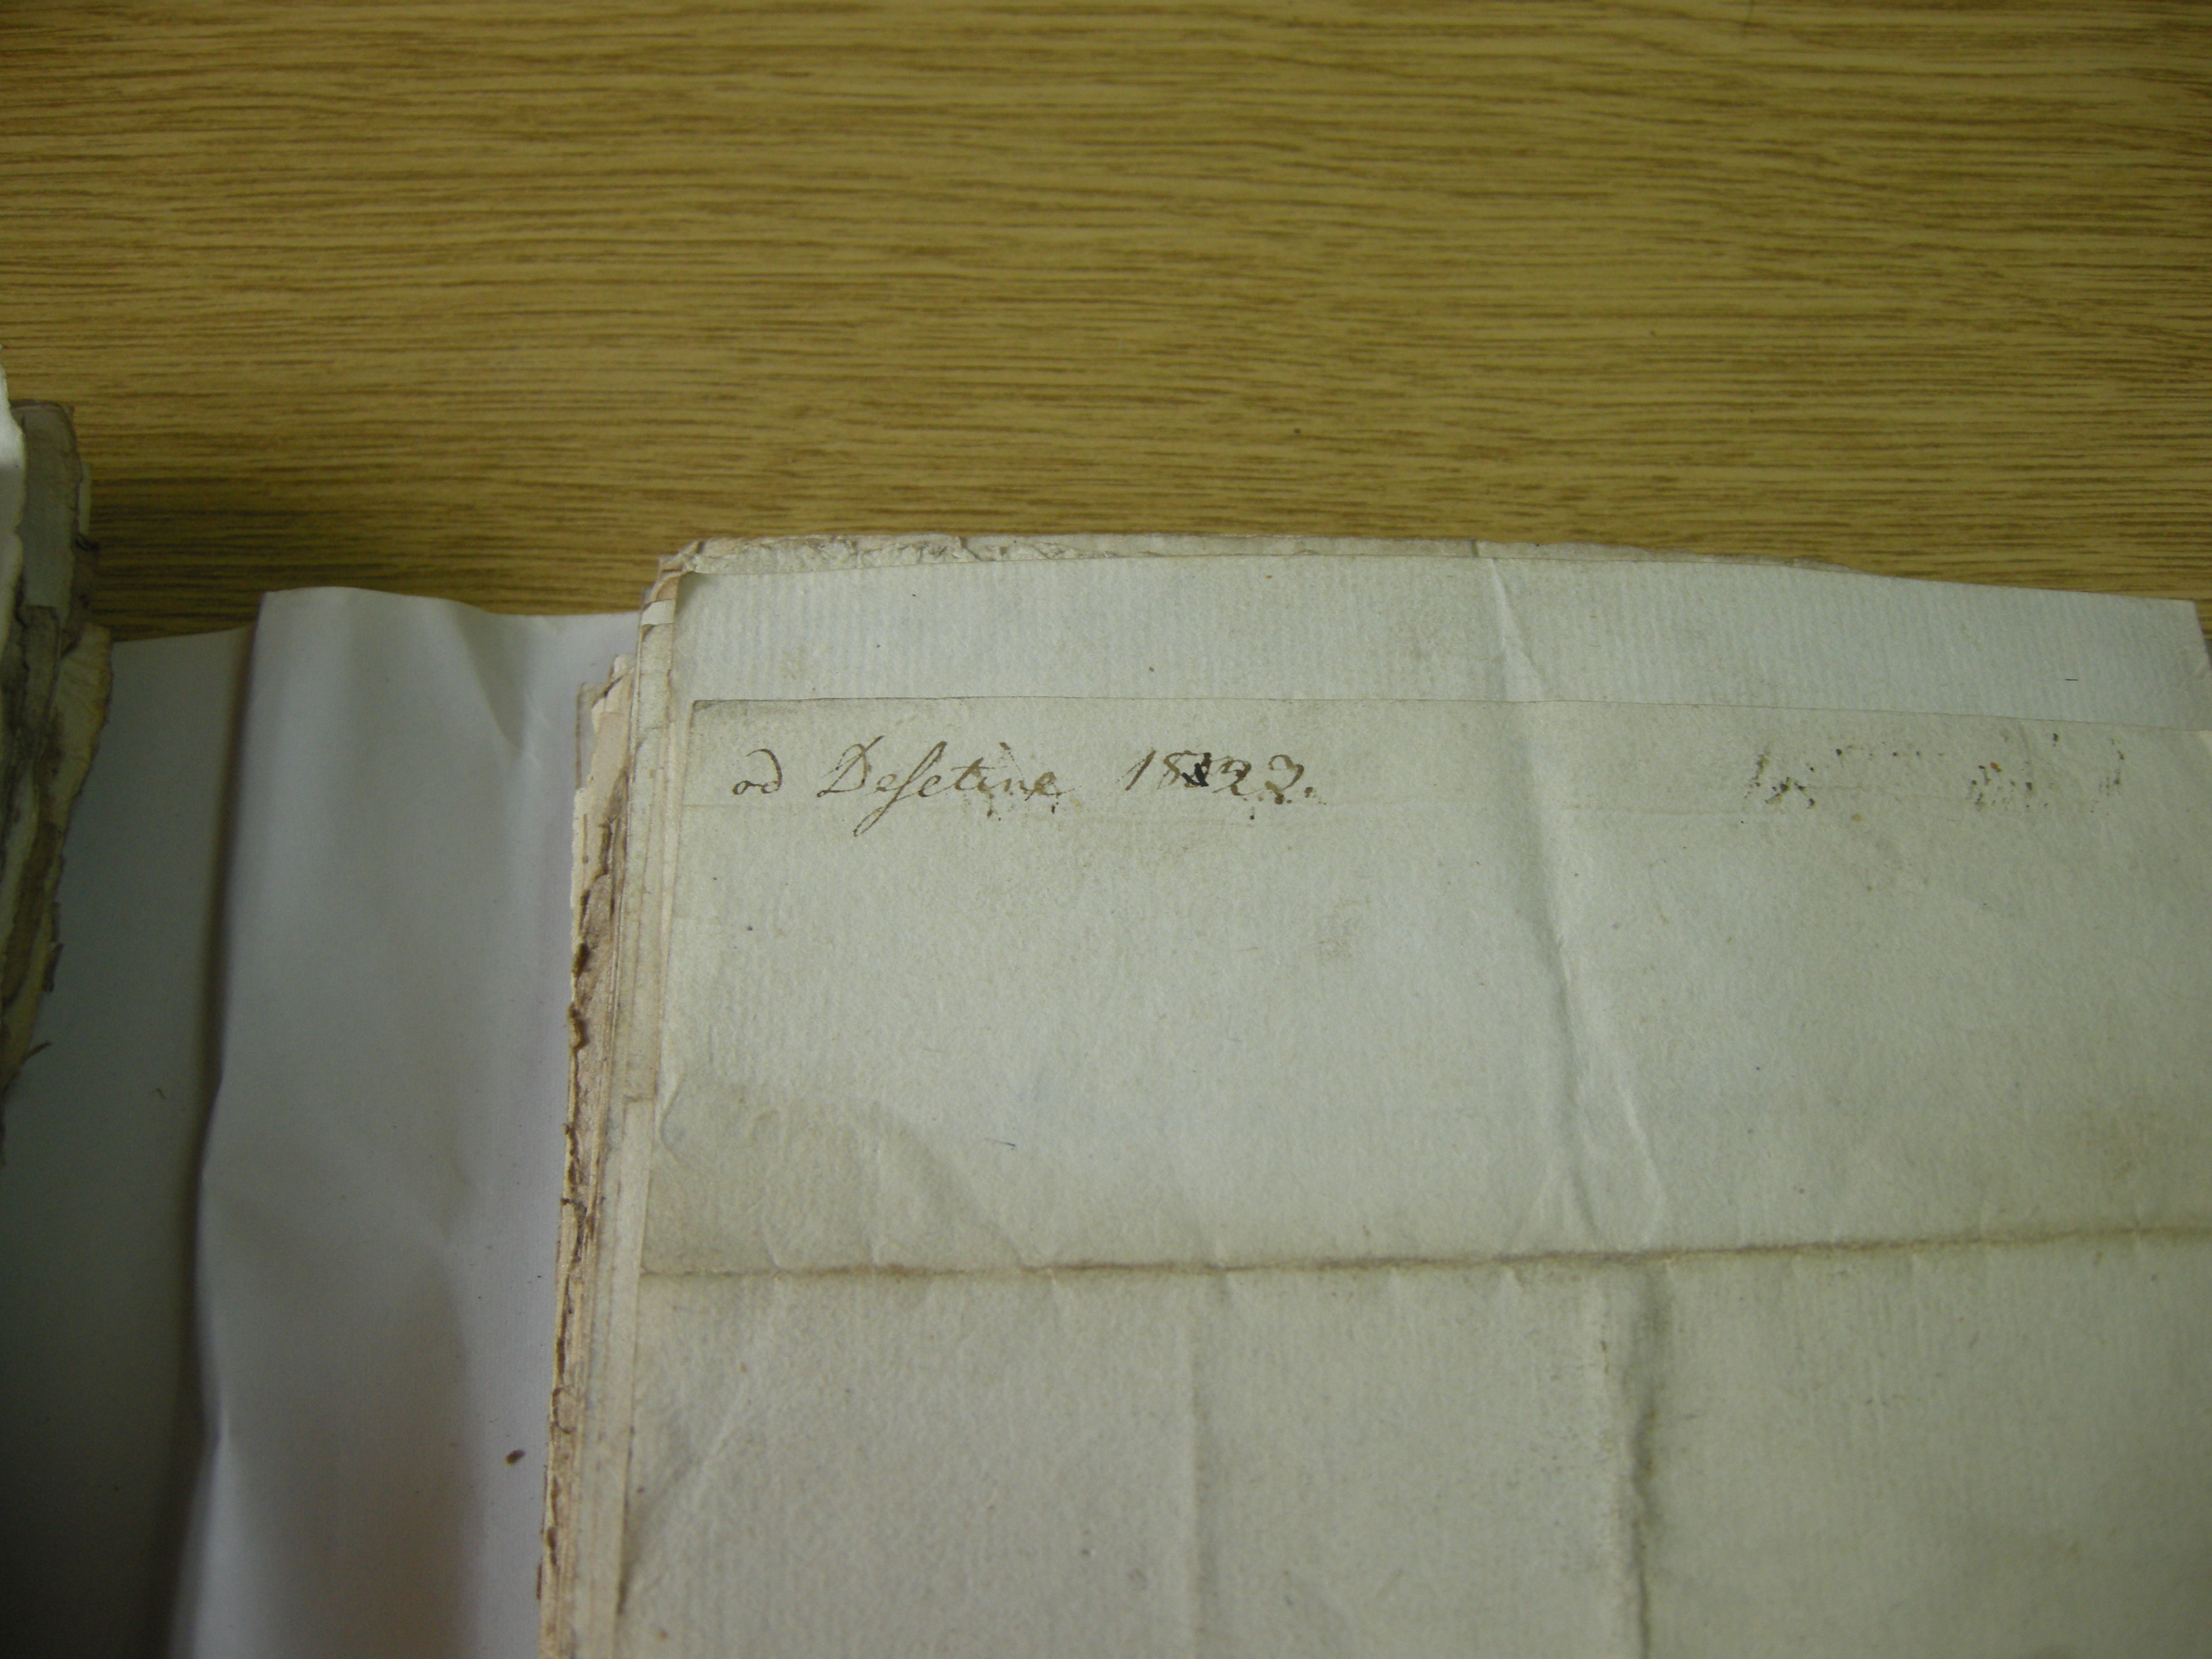 od Desetine 1823.